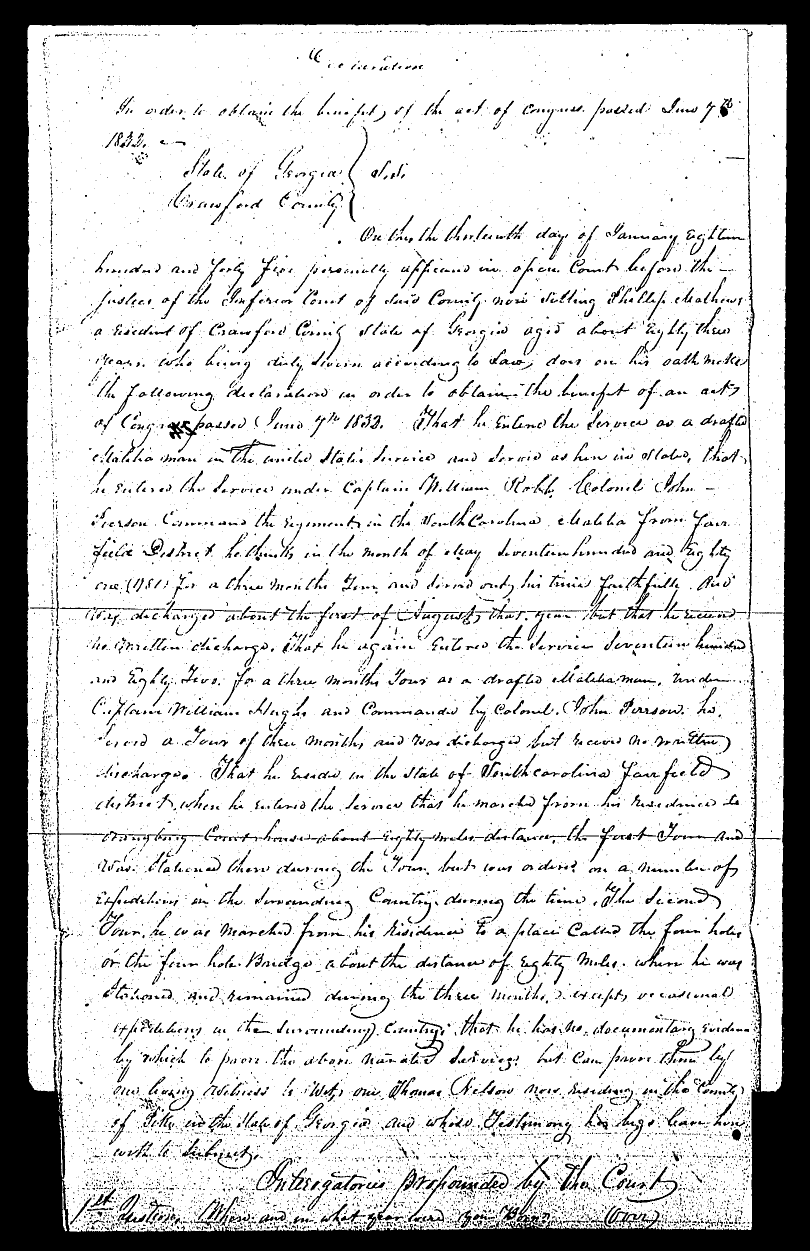 Declaration
In order to obtain the benefit, of the act of congress passed June 7th
1832.
State of Georgia } Sct
Crawford County
On this the thirteenth day of January Eighteen
hundred and forty five personally appeared in open Court before the
justices of the Inferior Court of said County now sitting Phillip Mathews
a Resident of Crawford County State of Georgia aged about Eighty three
years who being duly Sworn according to Law, does on his oath make
the following declaration in order to obtain the benefit of an act
of Congress passed June 7th 1832. That he Enterd the Service as a drafted
Malitia man in the united States Service and Servd as here in Stated, that
he Entered the Service under Captain William Robb, Colonel John
Pierson Command the Regiment, in the South Carolina Malitia from Fair
field District he thinks in the month of May Seventeen hundred and Eighty
one (1781) for a three months Tour and Served out his time faithfully. And
was discharged about the first of August, that year but that he received
no written discharge. That he again Entered the Service Seventeen hundred
and Eighty Two. for a three months Tour as a drafted Malitia man, under
Captain William Hughs and Commanded by Colonel John Pierson. he
Served a Tour of three months and was discharged but received no written
discharge. That he Resided in the State of South carolina Fairfield
district when he Entered the Service that he marched from his Residence to
orangburg Court house about Eighty miles distance, the first Tour and
was Stationed there during the Tour, but was ordered on a number of
Expeditions in the Surounding Country during the time. The Second
Tour, he was Marched from his Residence to a place Called the four holes
or the four hole Bridge about the distance of Eighty Miles. where he was
Stationed and remained during the three months, except occasional
expeditions in the Surounding Country, that he has no documentary Evidence
by which to prove the above narrated Services but Can prove them by
one living witness to Wit, one Thomas Nelson now Residing in the County
of Pike in the State of Georgia and whose Testimony he begs leave here
with to Submit.
Interogatories propounded by the Court
1st Question, Where and in what year were you Born (over)